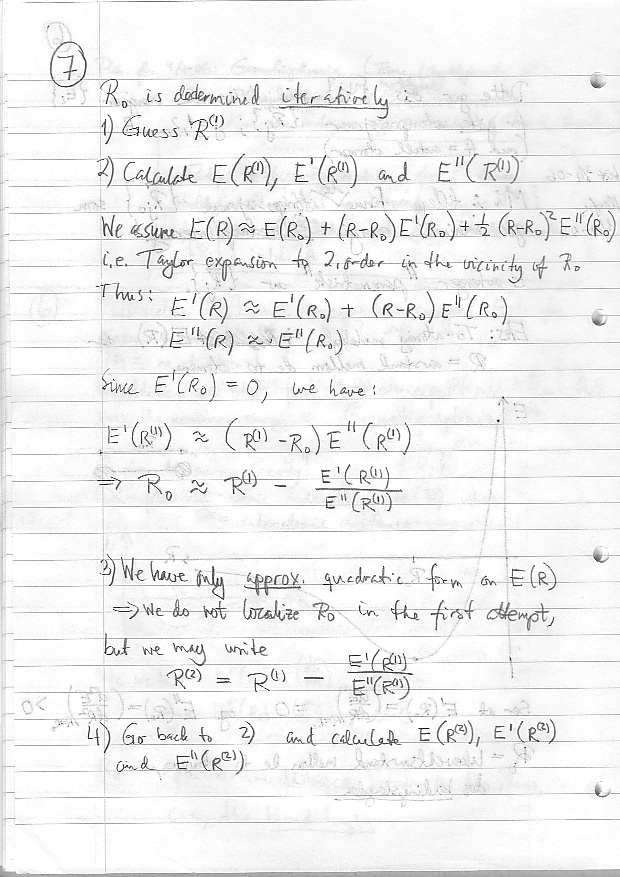 7
R₀ is determined iteratively:
1) Guess R⁽¹⁾
2) Calculate E(R⁽¹⁾), E'(R⁽¹⁾) and E''(R⁽¹⁾)
We assume E(R) ≈ E(R₀) + (R-R₀)E'(R₀) + ½ (R-R₀)² E''(R₀)
i.e. Taylor expansion to 2. order in the vicinity of R₀
Thus: E'(R) ≈ E'(R₀) + (R-R₀) E''(R₀)
E''(R) ≈ E''(R₀)
Since E'(R₀) = 0, we have:
E'(R⁽¹⁾) ≈ (R⁽¹⁾ - R₀) E''(R⁽¹⁾)
⇒ R₀ ≈ R⁽¹⁾ - E'(R⁽¹⁾) / E''(R⁽¹⁾)
3) We have only approx. quadratic form on E(R)
⇒ We do not localize R₀ in the first attempt,
but we may write
R⁽²⁾ = R⁽¹⁾ - E'(R⁽¹⁾) / E''(R⁽¹⁾)
4) Go back to 2) and calculate E(R⁽²⁾), E'(R⁽²⁾)
and E''(R⁽²⁾)